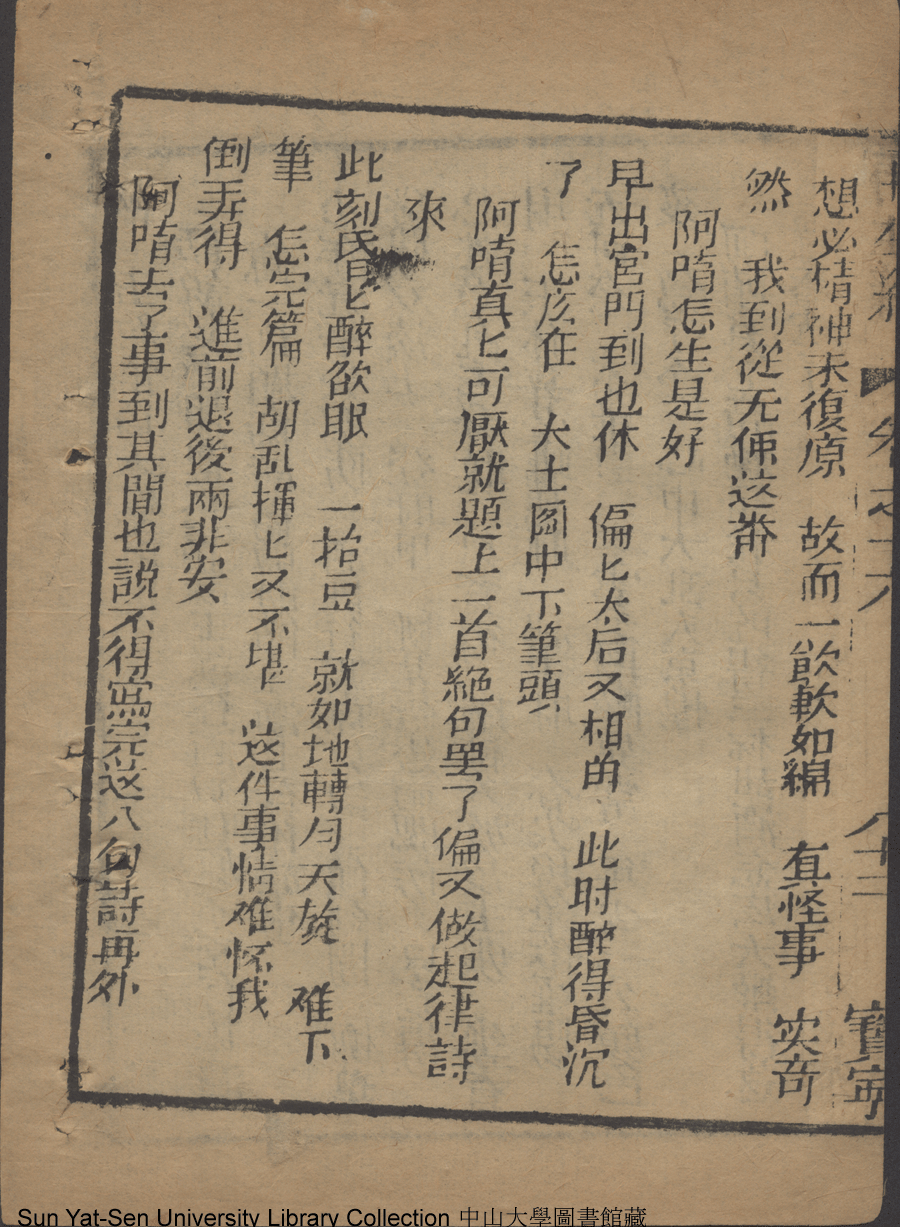 想必精神未復原　故而一飲軟如綿　有怪事　实奇
然　我到從无俩这畨
阿唷怎生是好
早出宮門到也休　偏匕太后又相的　此时醉得昏沉
了　怎庅在　大士圖中下筆頭
阿唷真匕可厭就題上一首絶句罢了偏又做起律詩
來
此刻昏匕醉欲眠　一抬豆　就如地轉勻天旋　难下
筆　怎完篇　胡乱揮匕又不堪　这件事情难怀我
倒弄得　進前退後兩非安
阿唷去了事到其間也説不得寫完这八句詩再外
卷之十六
八十二
寳寧
Sun Yat-Sen University Library Collection 中山大學圖書館藏